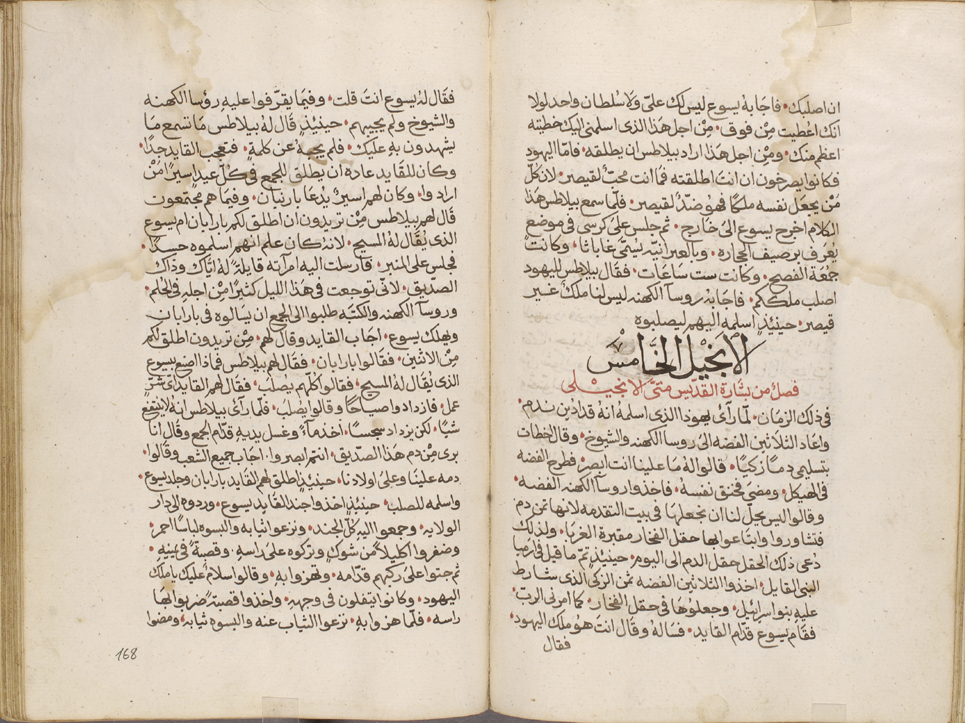 ان اصلبك • فاجابه يسوع ليس لك عليّ ولا سلطان واحد لولا
انك اعطيت مِنْ فوق • مِنْ اجل هَذا الذى اسلمنى اليك خطيته
اعظم منك • ومِنْ اجل هَذا اراد بيلاطس ان يطلقه • فامّا اليهود
فكانوا يصرخون ان انتَ اطلقته فما انت محبّ لقيصر • لان كلّ
مَنْ يجعل نفسه ملكًا فهو ضدّ لقيصر • فلمّا سمع بيلاطس هَذا
الكلام اخرج يسوع الى خارج • ثم جلس على كرسى فى موضع
يُعرَف برصيف الحجارة • وبالعبرانيّه يُسَمَّى غاباثا • وكانت
جمعَة الفصح • وكانت ست ساعَات • فقال بيلاطس لليهود
اصلب ملككم • فاجابه روسآ الكهنه ليس لنا ملك غير
قيصر • حينيذٍ اسلمه اليهم ليصلبوه
الانجيل الخامس
فصلٌ من بشارة القديس متى الانجيلى
فى ذلك الزمان • لما رأى يهودا الذى اسلمه انه قد ادين ندم •
واعَاد الثلاثين الفضه الى روسآ الكهنه والشيوخ • وقال اخطات
بتسليمي دمًا زكيًا • قالوا له ما علينا انت ابصر • فطرح الفضه
فى الهيكل • ومضى فخنق نفسَه • فاخذوا روسآ الكهنه الفضه •
وقالوا ليس يحلّ لنا ان نجعلها فى بيت التقدمه لانها ثمن دم
فتشاوروا وابتاعوا بها حقل الفخار مقبرة الغربا • ولذلك
دُعى ذلك الحقل حقل الدم الى اليوم • حينيذٍ تمّ ما قيل فى ارميا
النبى القايل • اخذوا الثلاثين الفضه ثمن الزكى الذى شارط
عليه بنو اسراييل • وجعلوها فى حقل الفخار • كما امرنى الرب •
فقام يسوع قدّام القايد • فساله وقال انت هُو ملك اليهود •
فقال
فقال له يسوع انت قلت • وفيما يقرّفوا عليه روسآ الكهنه
والشيوخ ولم يجيبهم • حينيذٍ قال له بيلاطس مَا تسمع مَا
يشهدون به عليك • فلم يجبه عن كلمة • فتعجب القايد جدًا •
وكان للقايد عادة ان يطلق للجمع فى كلّ عيد اسيرًا مَنْ
ارادوا • وكان لهم اسيرٌ يُدعَا بارابان • وفيما هم مجتمعون
قال لهم بيلاطس مَنْ تريدون ان اطلق لكم بارابان ام يسوع
الذى يُقال له المسيح • لانه كان علم انهم اسلموه حسدًا •
فجلس على المنبر • فارسلت اليه امرأته قايلة له اياك وذاك
الصديق • لانى توجعت فى هَذا الليل كثيرًا من اجله فى الحلم •
وروسآ الكهنه والكتبه طلبوا الى الجمع ان يسالوه فى بارابان
ويهلك يسوع • اجاب القايد وقال لهم • مَنْ تريدون اطلق لكم
مِن الاثنين • فقالوا بارابان • فقال لهم بيلاطس فماذا اصنع بيسوع
الذى يُقال له المسيح • فقالوا كلّهم يصلب • فقال لهم القايد اى شرّ
عمل • فازدادوا صياحًا وقالوا يصلب • فلما رأى بيلاطس انه لا ينتفع
شيًا • لكن يزداد سجسًا • اخذ مآءً وغسل يديه قدّام الجمع وقال انا
برى مِنْ دم هذا الصدّيق • انتم ابصروا • اجاب جميع الشعب وقالوا •
دمه علينا وعلى اولادنا • حينيذٍ اطلق لهم القايد بارابان وجلد يسوع •
واسلمه للصلب • حينيذٍ اخذوا جند القايد يسوع • وردوه الى دار
الولايه • وجمعوا اليه كلّ الجند • ونزعوا ثيابه والبسوه لباسًا احمر •
وضفروا اكليلاً من شوك وتركوه على راسه • وقصبةً فى يمينه •
ثم جثوا على ركبهم قدّامه • ولهزوا به • وقالوا سلام عليك يا ملك
اليهود • وكانوا يتفلون فى وجهه • واخذوا قصبة ضربوا بها
راسه • فلمّا هزوا به • نزعوا الثياب عنه والبسوه ثيابه • ومضوا
168